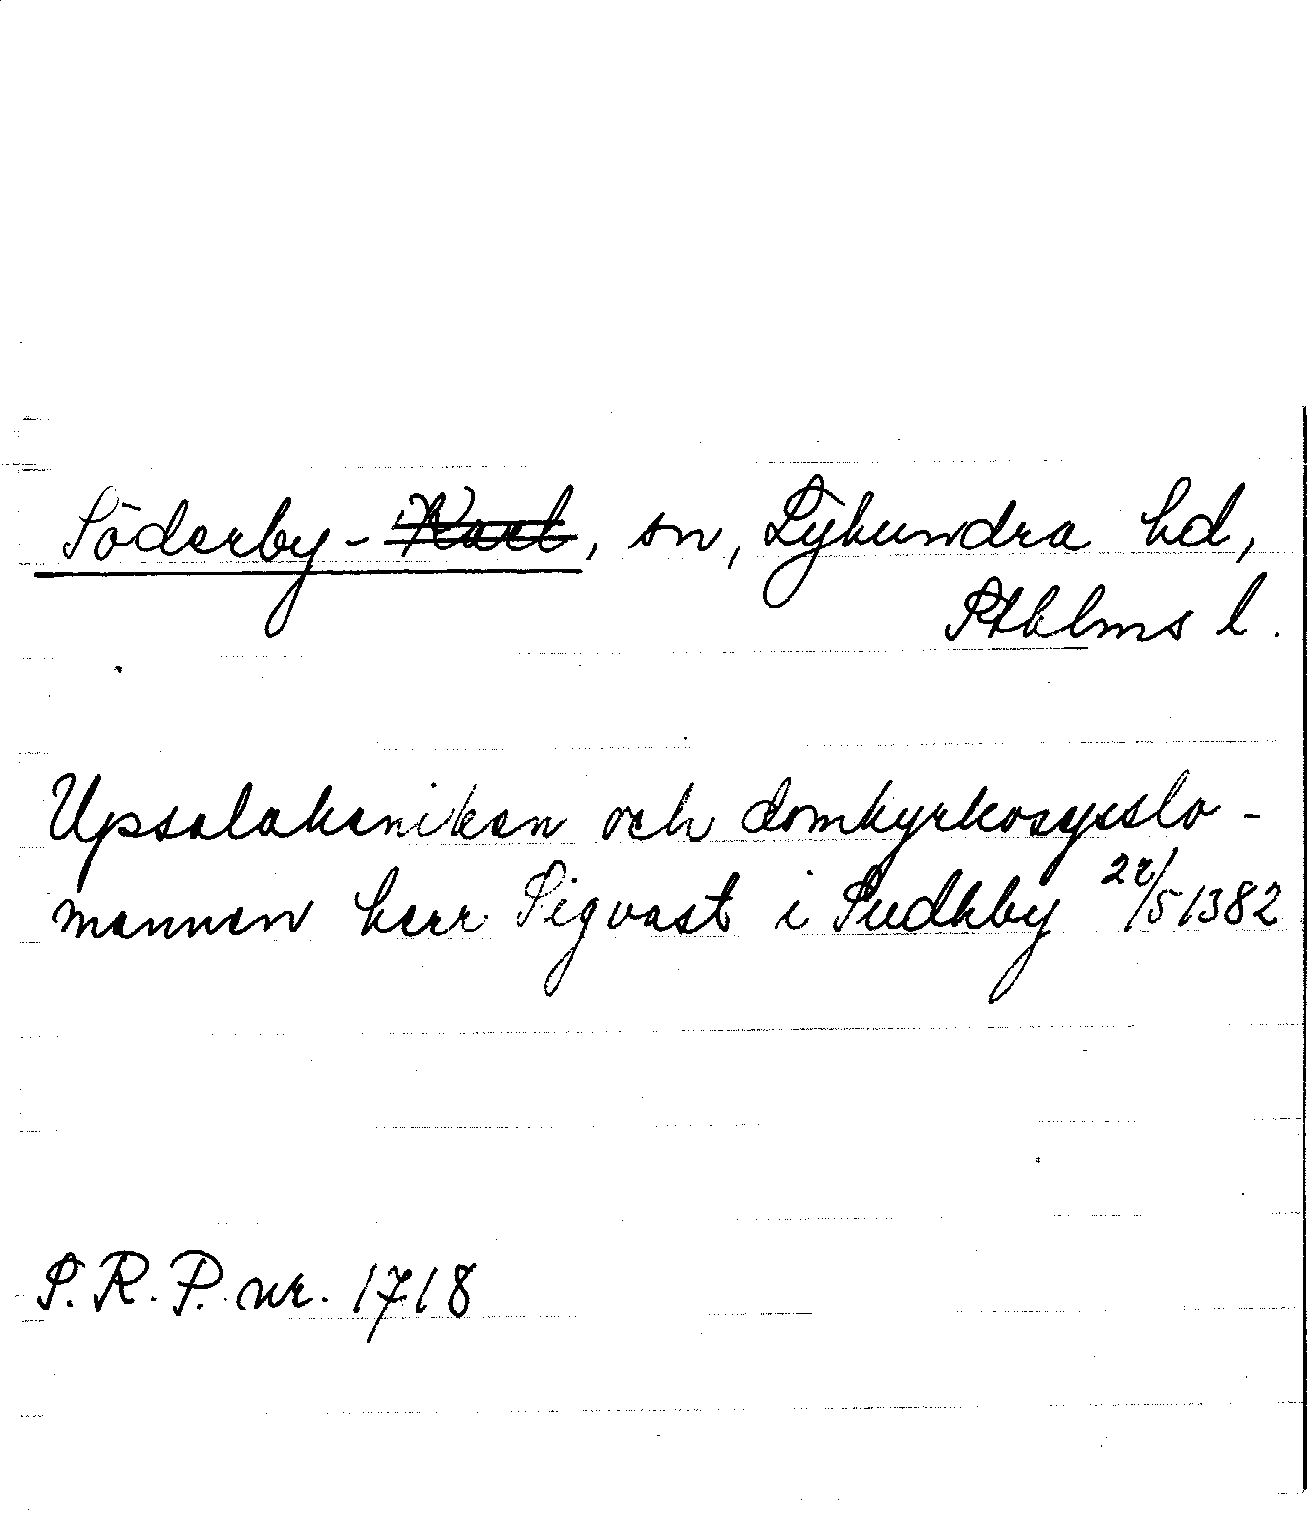 Söderby-Karl, sn, Lyhundra hd,
Sthlms l.
Upsalakaniken och domkyrkosysslo-
mannen herr Sigvast i Sudhby 22/5 1382
S.R.P. nr. 1718